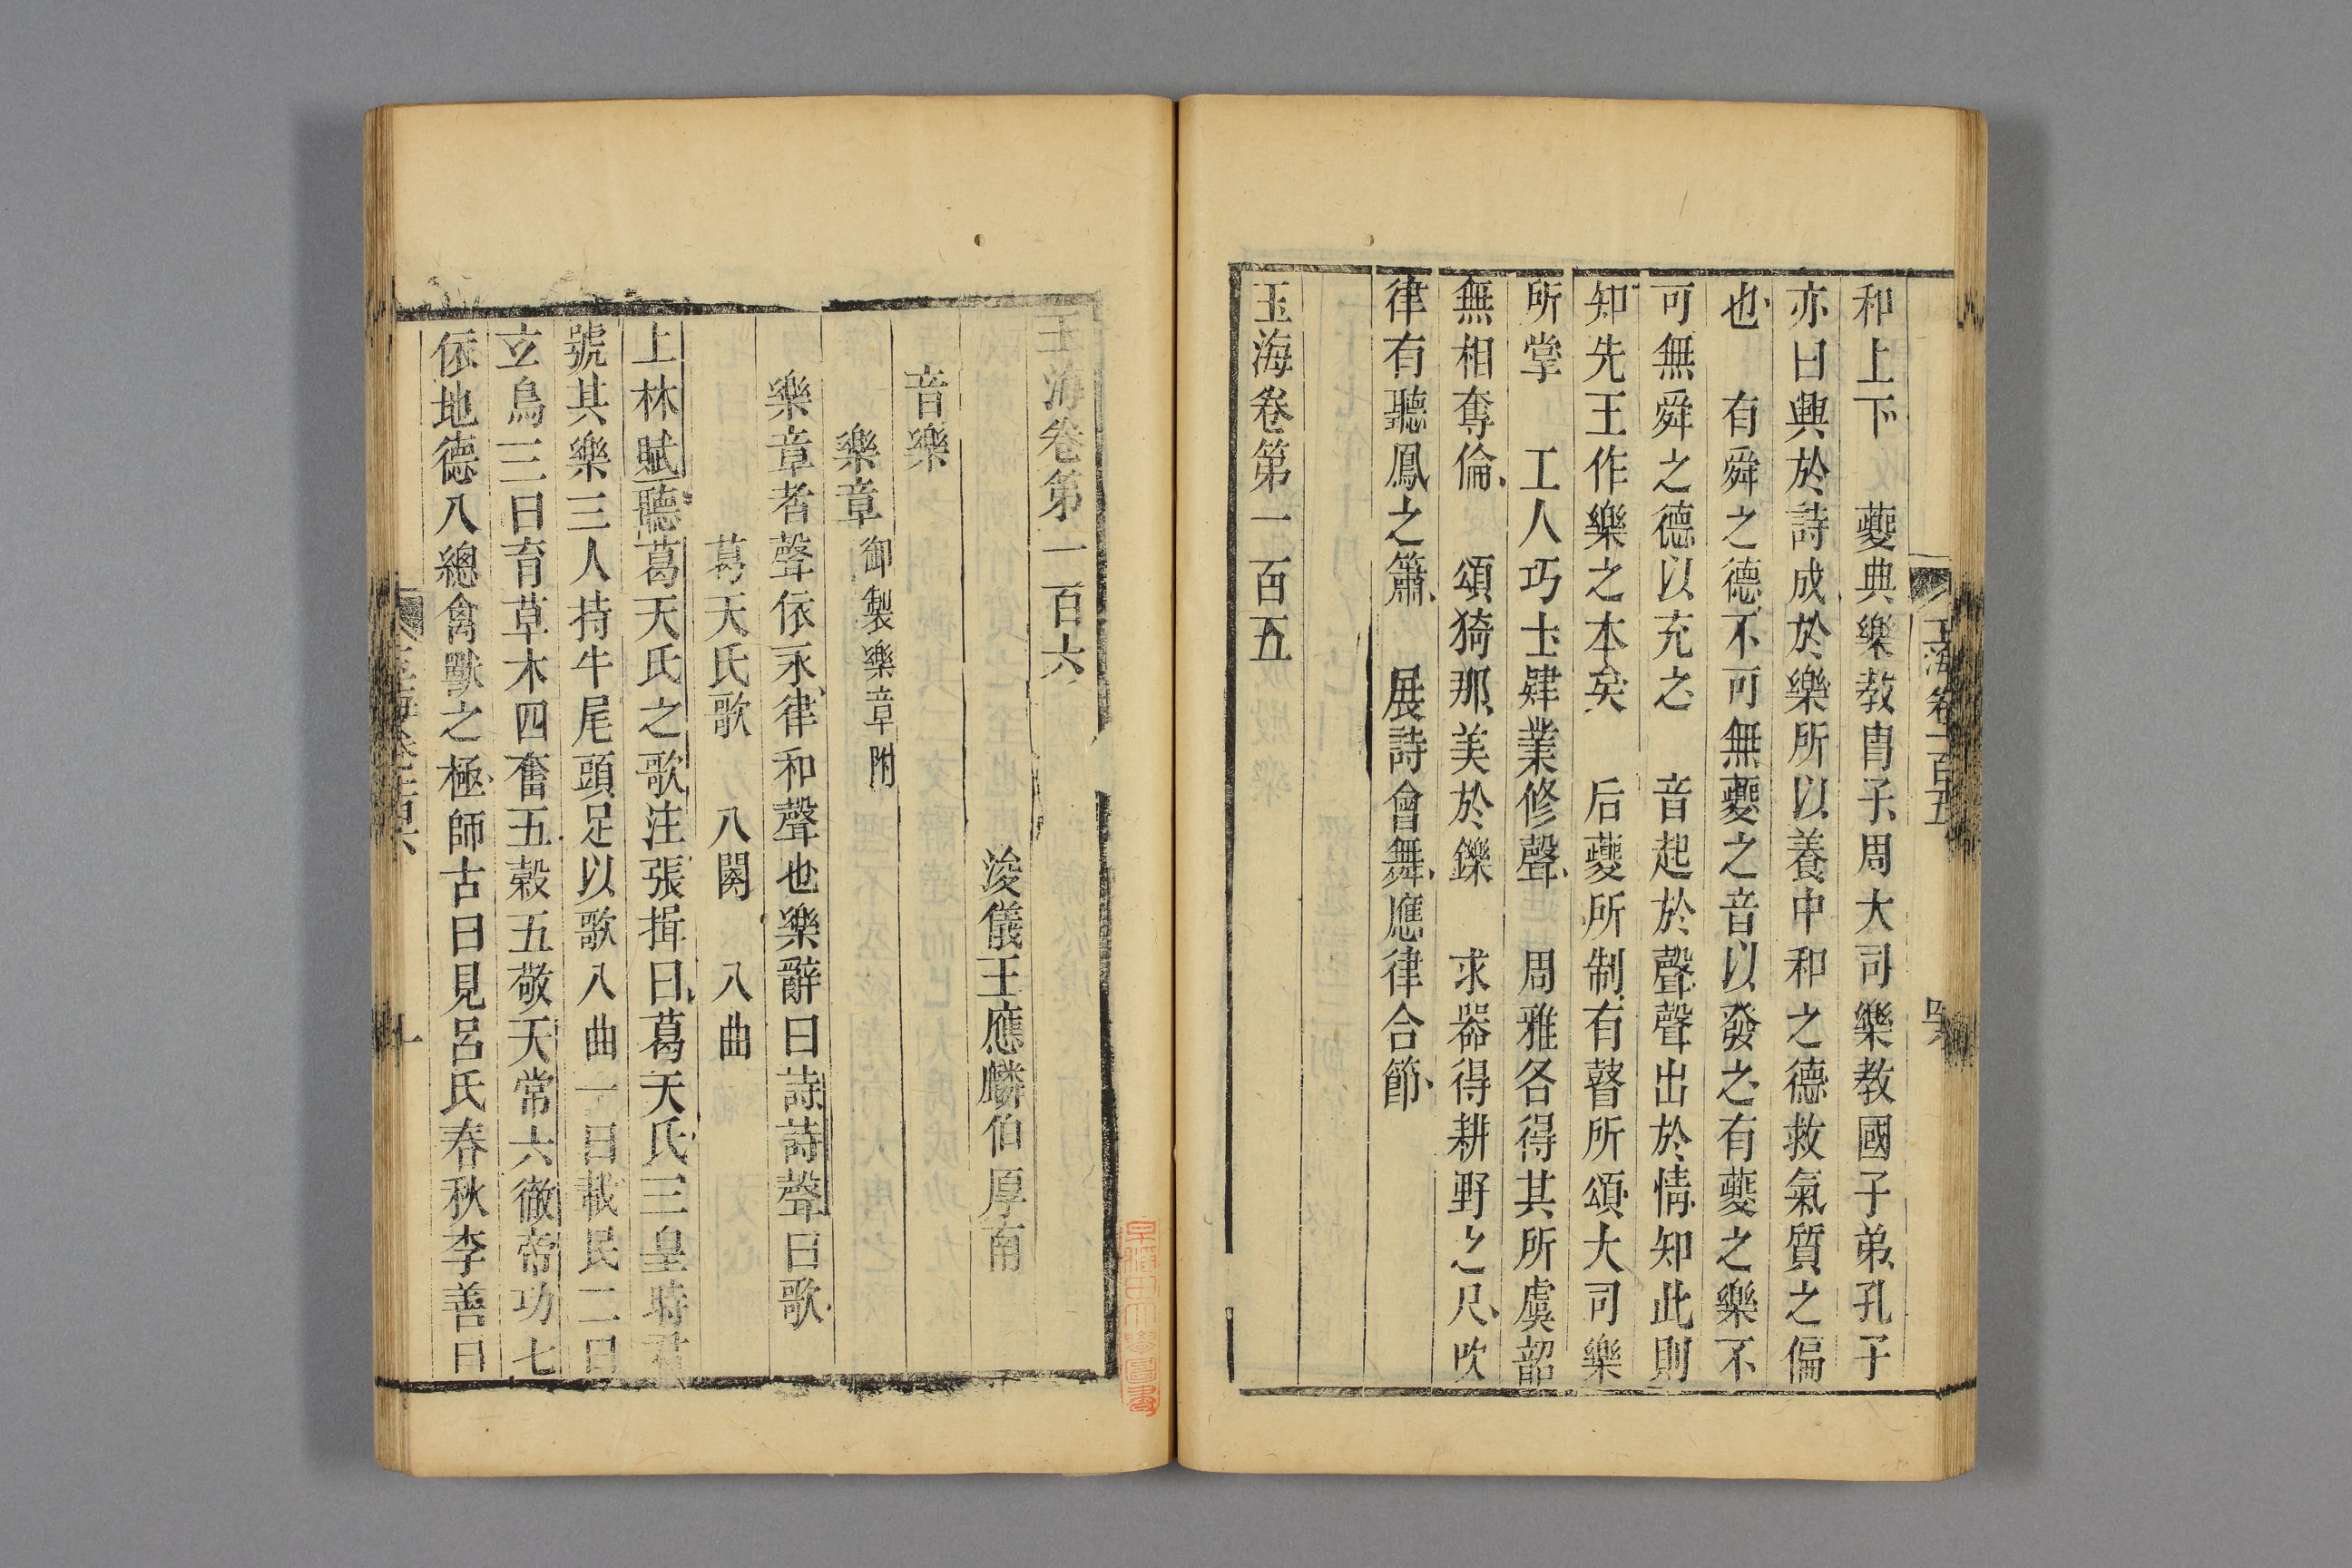 和上下　夔典樂教胄子周大司樂教國子弟孔子
亦曰興於詩成於樂所以養中和之德救氣質之偏
也　有舜之德不可無夔之音以發之有夔之樂不
可無舜之德以充之　音起於聲聲出於情知此則
知先王作樂之本矣　后夔所制有瞽所頌大司樂
所掌　工人巧士肄業修聲　周雅各得其所虞韶
無相奪倫　頌猗那美於鑠　求器得耕野之尺吹
律有聽鳳之簫　展詩會舞應律合節
玉海卷第一百五
玉海卷第一百六
浚儀王應麟伯厚甫
音樂
樂章御製樂章附
樂章者聲依永律和聲也樂辭曰詩詩聲曰歌
葛天氏歌　八闋　八曲
上林賦聽葛天氏之歌注張揖曰葛天氏三皇時君
號其樂三人持牛尾頭足以歌八曲一曰載民二曰
玄鳥三曰育草木四奮五穀五敬天常六徹帝功七
依地德八總禽獸之極師古曰見呂氏春秋李善曰
玉海卷一百五
早稲田大學圖書